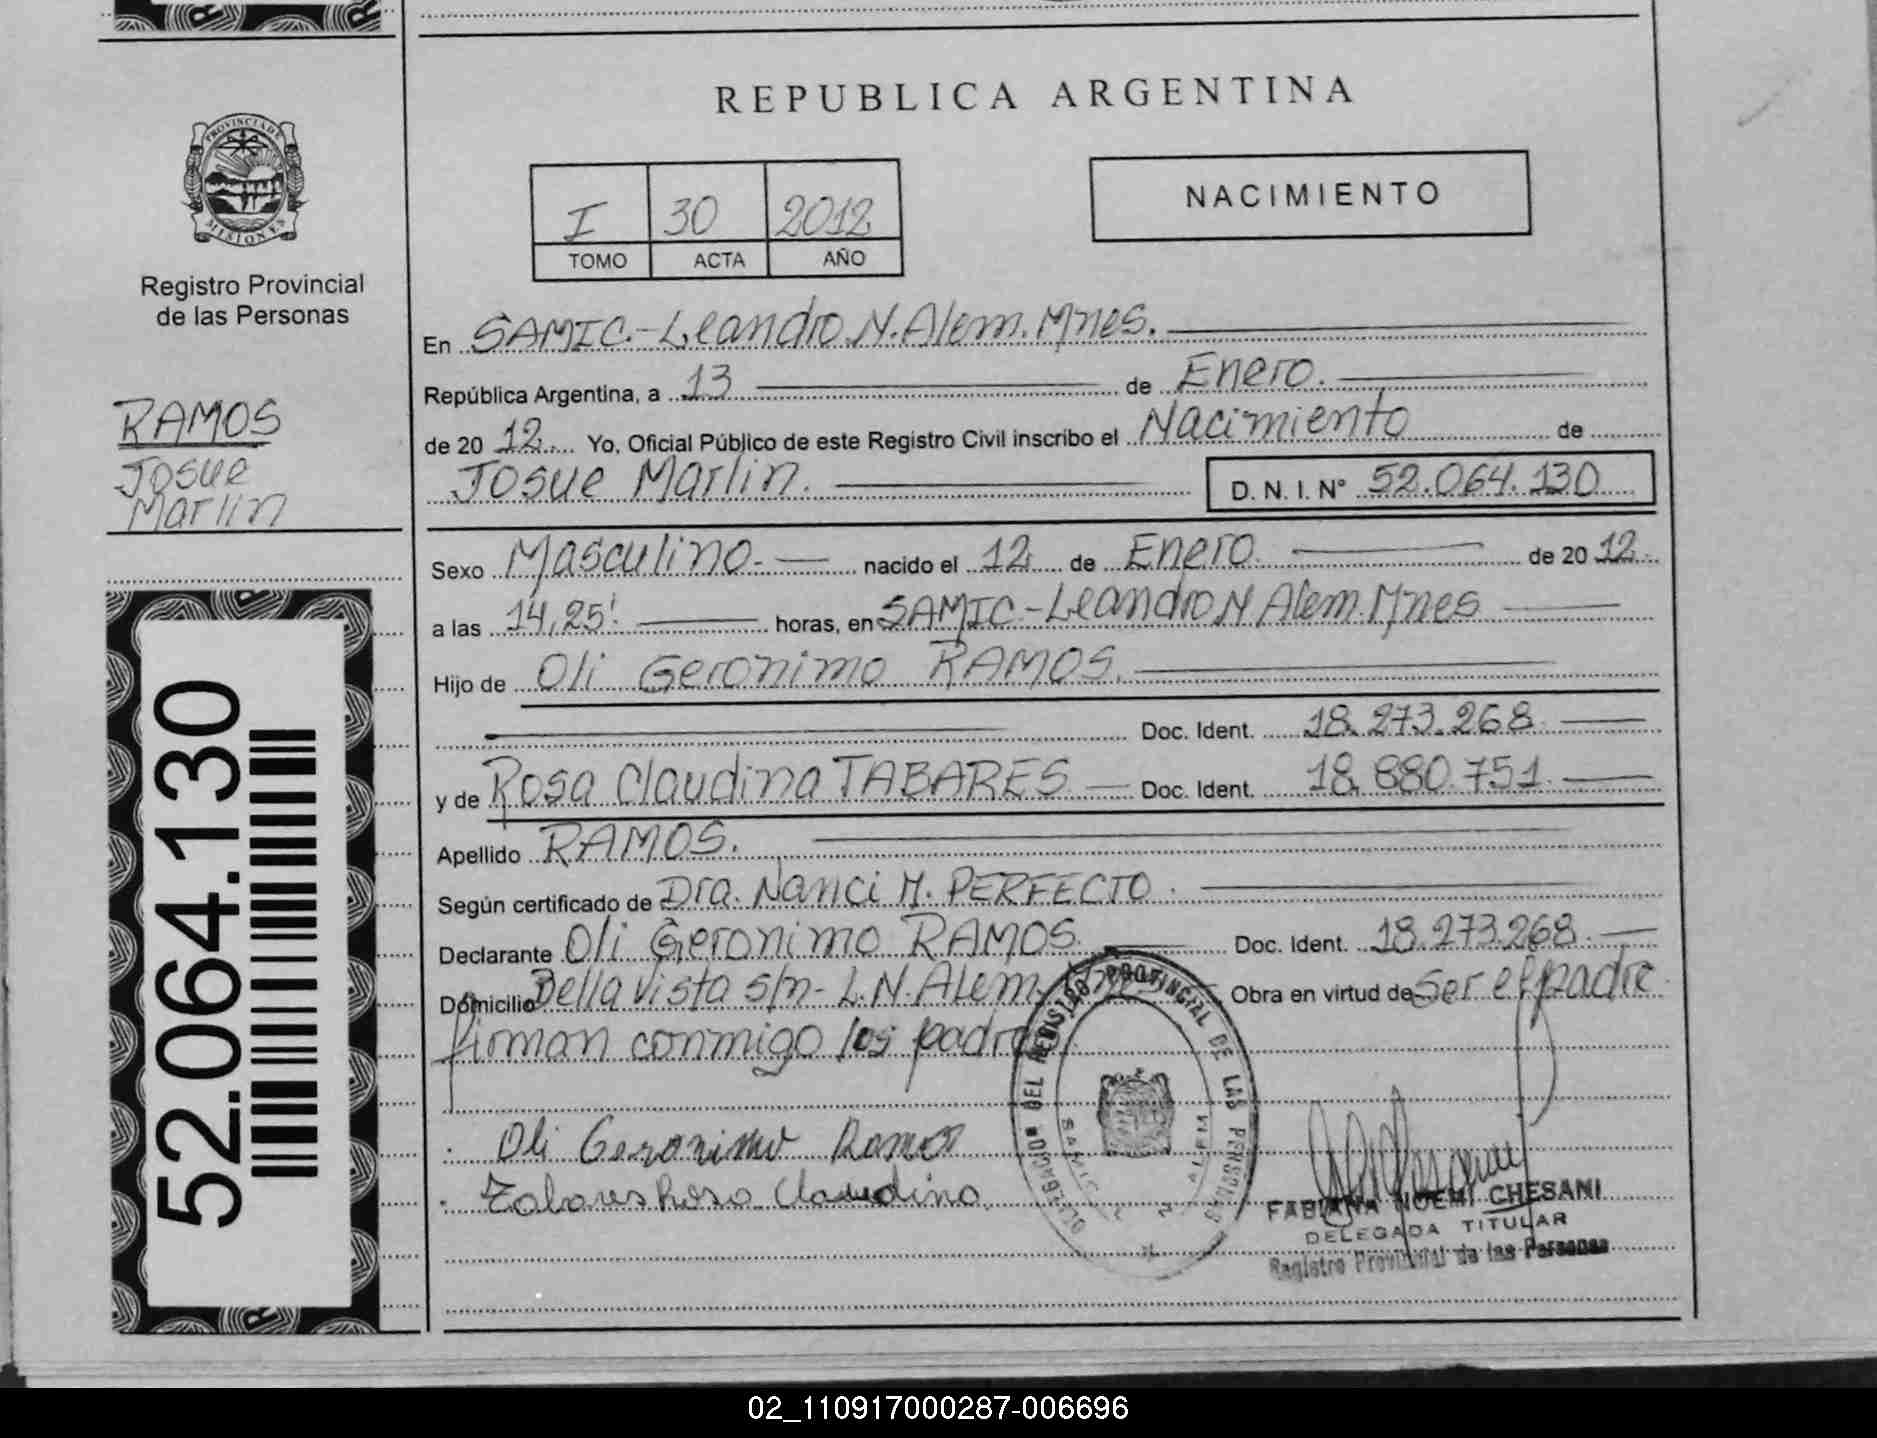 REPUBLICA ARGENTINA
PROVINCIA DE MISIONES
Registro Provincial
de las Personas
I 30 2012
TOMO ACTA AÑO
NACIMIENTO
En SAMIC.-Leandro.N.Alem.Mnes.
República Argentina, a 13 de Enero.
de 20 12 Yo, Oficial Público de este Registro Civil inscribo el Nacimiento de
Josue Marlin. D. N. I. N° 52.064.130
RAMOS
Josue
Marlin
Sexo Masculino.- nacido el 12 de Enero. de 20 12.
a las 14,25' horas, en SAMIC-Leandro N Alem.Mnes
Hijo de Oli Geronimo RAMOS.
Doc. Ident. 18.273.268
y de Rosa Claudina TABARES Doc. Ident. 18.880.751
Apellido RAMOS.
Según certificado de Dra. Nanci M. PERFECTO.
Declarante Oli Geronimo RAMOS Doc. Ident. 18.273.268.
Domicilio Bella Vista s/n- L.N.Alem. Obra en virtud de Ser el padre.
firman conmigo los padres
Oli Geronimo Ramos
Tabares Rosa Claudina
DELEGACION DEL REGISTRO PROVINCIAL DE LAS PERSONAS
SAMIC L N ALEM
FABIANA NOEMI CHESANI
DELEGADA TITULAR
Registro Provincial de las Personas
52.064.130
02_110917000287-006696